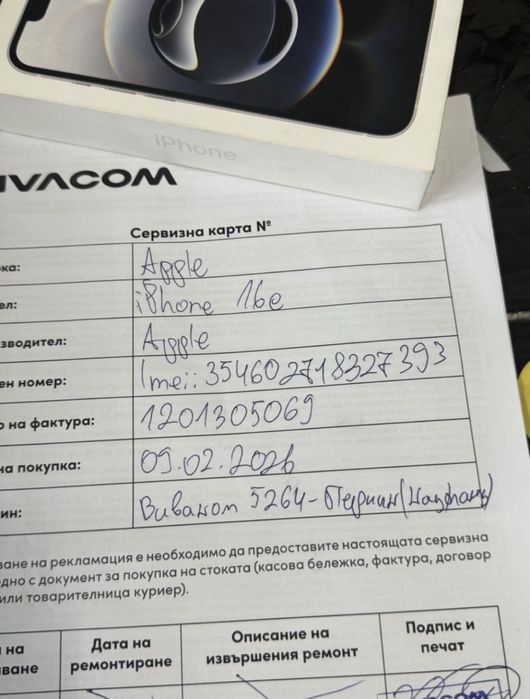 iPhone
IVACOM
Сервизна карта №
ка: Apple
ел: iPhone 16e
зводител: Apple
ен номер: Imei: 354602718327393
на фактура: 1201305069
на покупка: 09.02.2026
ин: Виваком 5264-
ване на рекламация е необходимо да предоставите настоящата сервизна
едно с документ за покупка на стоката (касова бележка, фактура, договор
или товарителница куриер).
на
ване
Дата на
ремонтиране
Описание на
извършения ремонт
Подпис и
печат